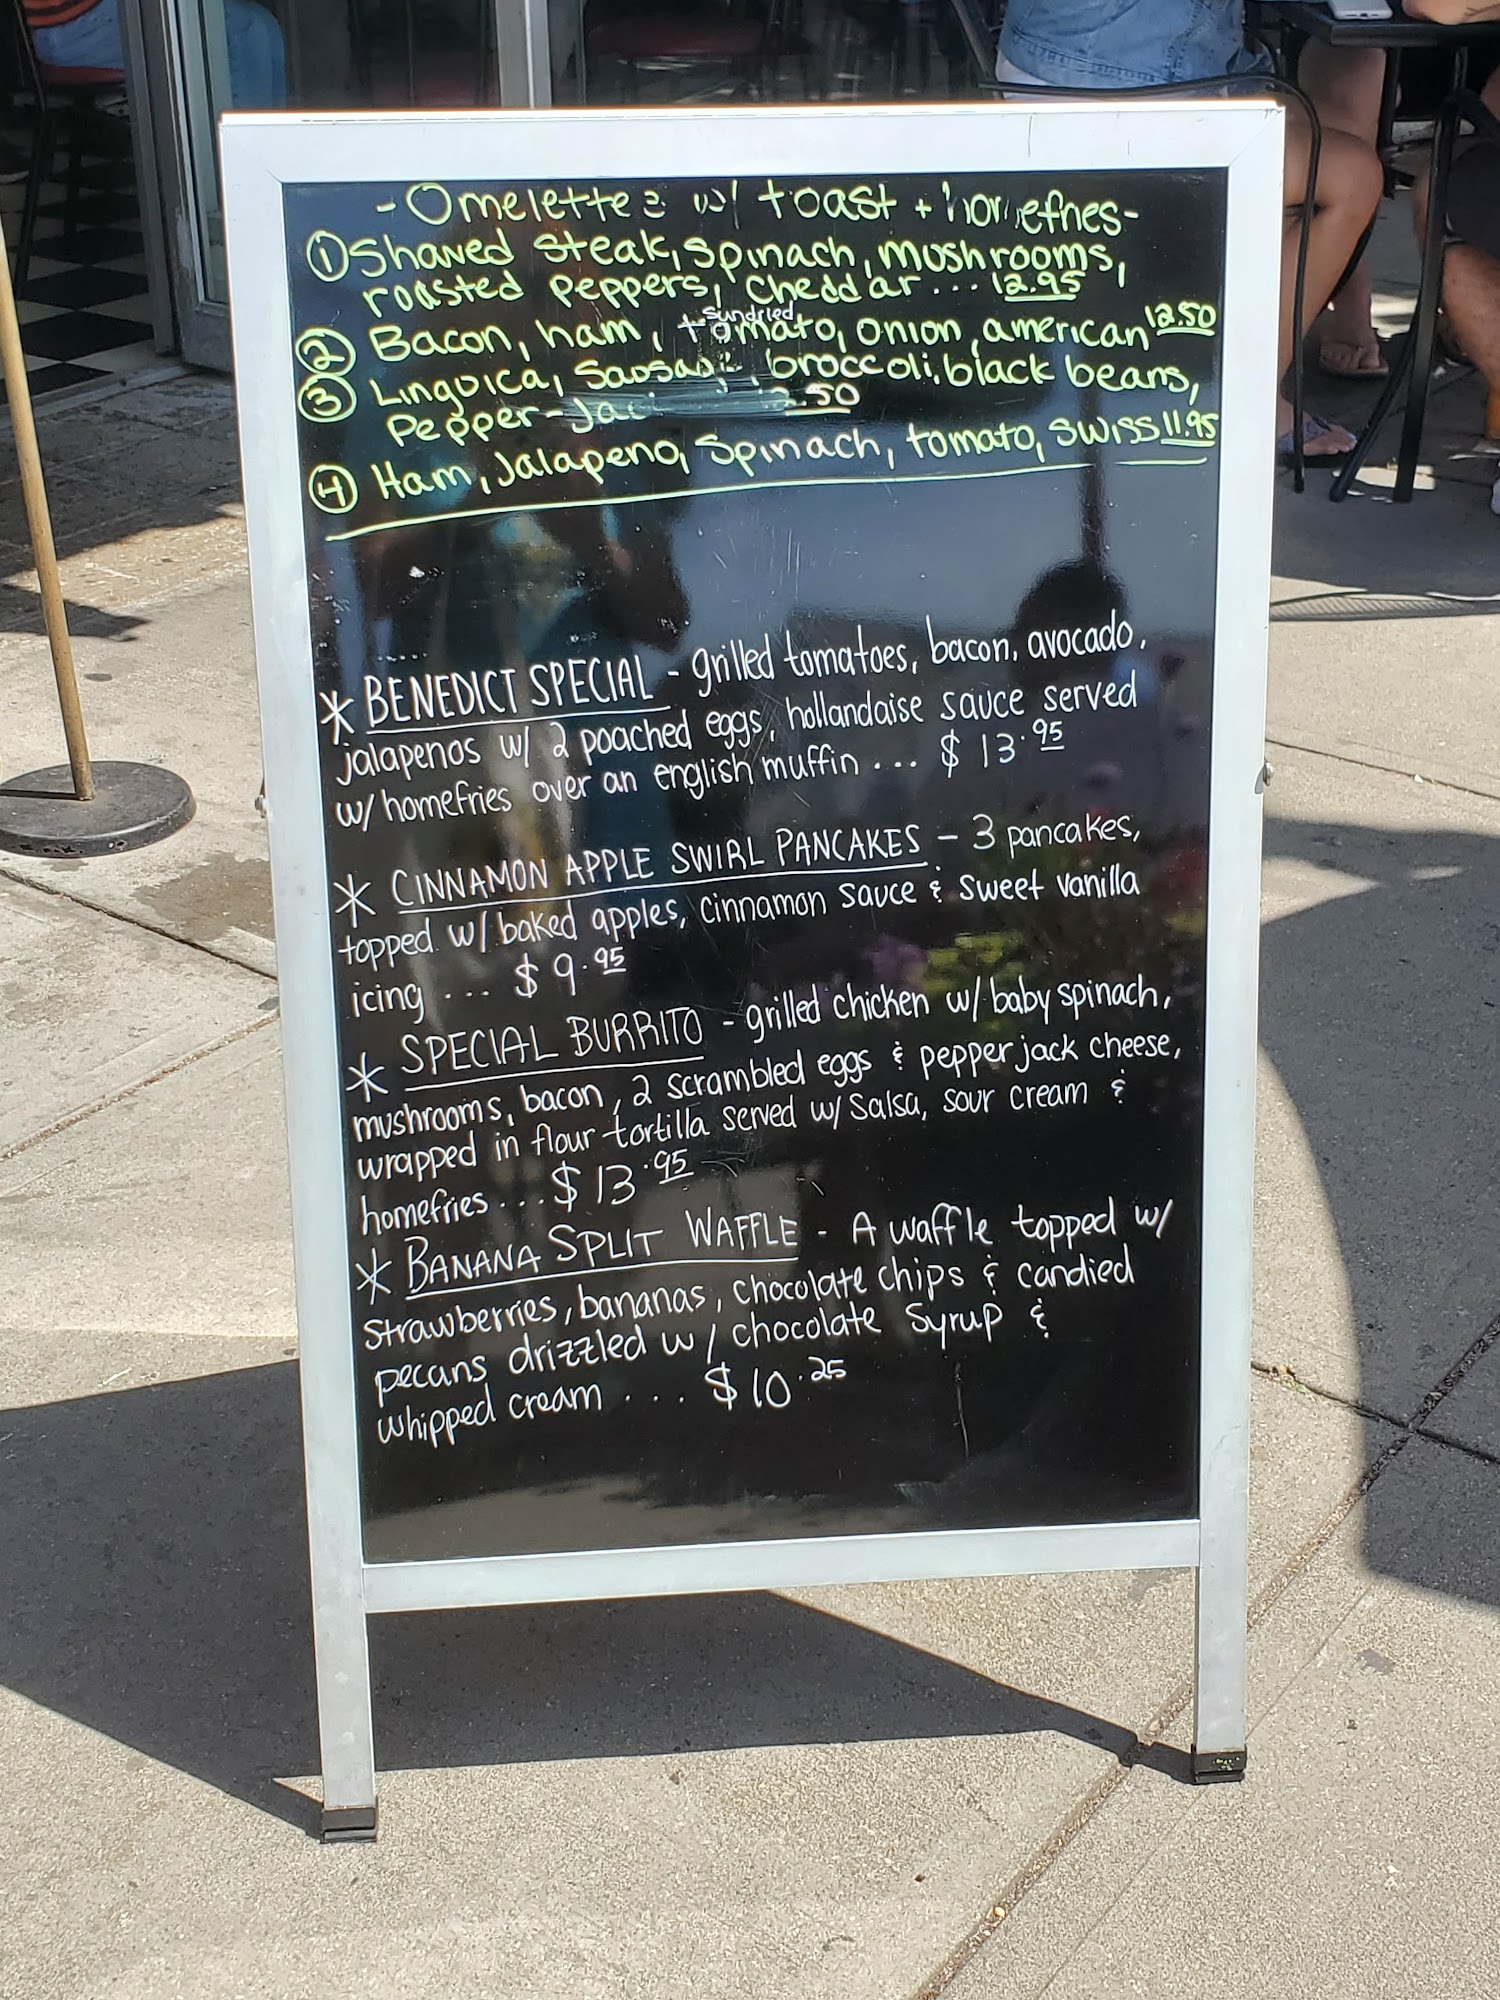 - Omelettes w/ toast + homefries -
① Shaved steak, spinach, mushrooms,
roasted peppers, cheddar... 12.95
sundried
② Bacon, ham, tomato, onion, american 12.50
③ Linguica, Sausage, broccoli, black beans,
Pepper-Jack .50
④ Ham, Jalapeno, Spinach, tomato, swiss 11.95
* BENEDICT SPECIAL - grilled tomatoes, bacon, avocado,
jalapenos w/ 2 poached eggs, hollandaise sauce served
w/ homefries over an english muffin ... $ 13.95
* CINNAMON APPLE SWIRL PANCAKES - 3 pancakes,
topped w/ baked apples, cinnamon sauce & sweet vanilla
icing ... $ 9.95
* SPECIAL BURRITO - grilled chicken w/ baby spinach,
mushrooms, bacon, 2 scrambled eggs & pepper jack cheese,
wrapped in flour tortilla served w/ salsa, sour cream &
homefries ... $ 13.95
* BANANA SPLIT WAFFLE - A waffle topped w/
strawberries, bananas, chocolate chips & candied
pecans drizzled w/ chocolate syrup &
whipped cream ... $ 10.25